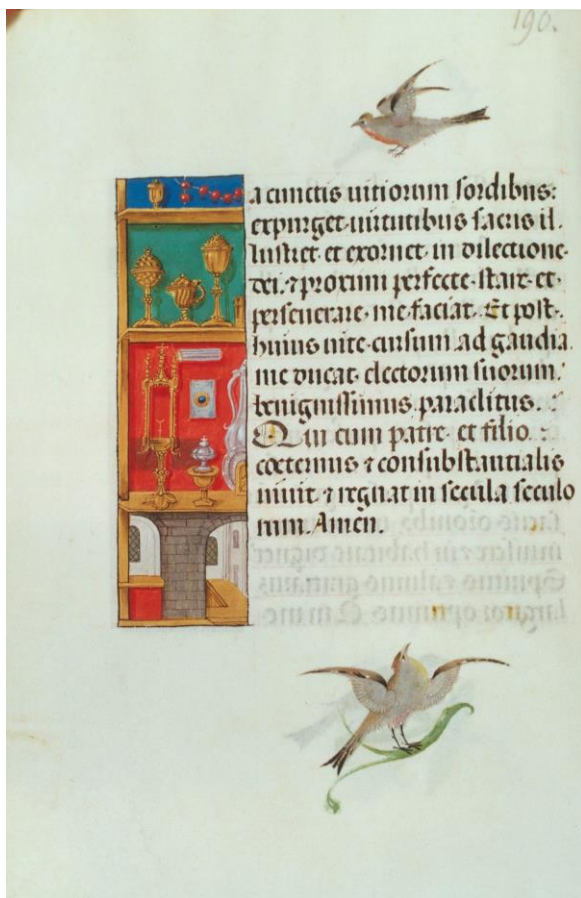 190.
a cunctis uitiorum sordibus:
expurget· uirtutibus sacris il-
lustret et exornet· in dilectione
dei· ⁊ proximi perfecte· stare· et·
perseuerare· me faciat. Et post·
huius uite· cursum ad gaudia
me ducat electorum suorum·
benignissimus paraclitus.
Qui cum patre· et filio
coeternus ⁊ consubstantialis
uiuit· ⁊ regnat in secula seculo
rum. Amen.